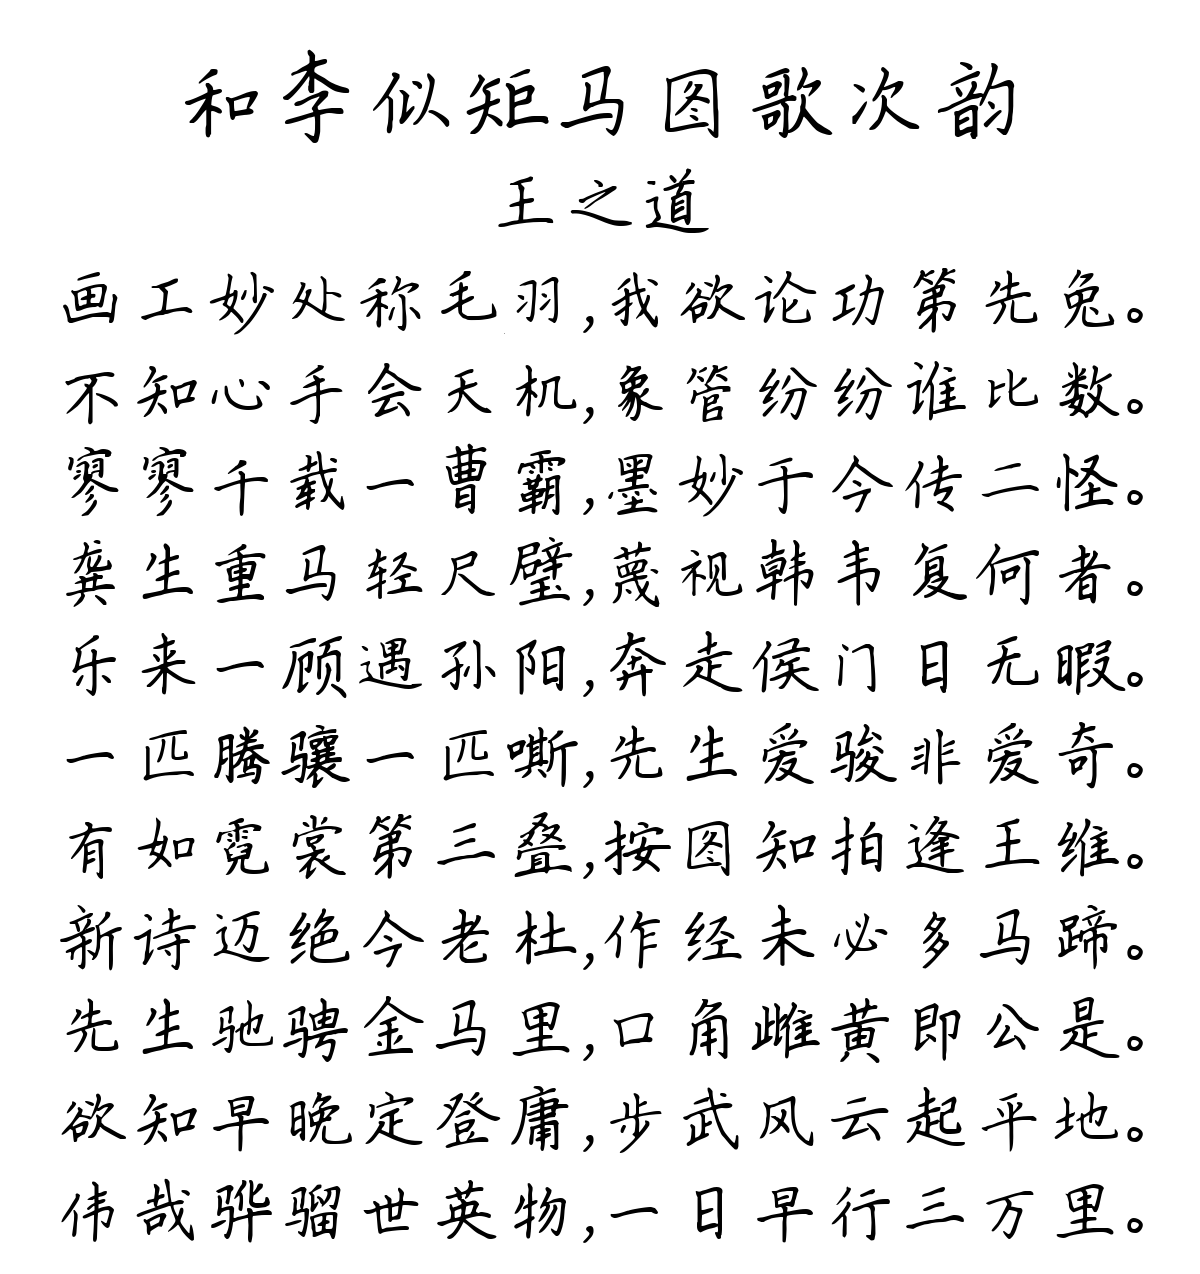 和李似矩马图歌次韵
王之道
画工妙处称毛羽,我欲论功第先兔。
不知心手会天机,象管纷纷谁比数。
寥寥千载一曹霸,墨妙于今传二怪。
龚生重马轻尺璧,蔑视韩韦复何者。
乐来一顾遇孙阳,奔走侯门日无暇。
一匹腾骧一匹嘶,先生爱骏非爱奇。
有如霓裳第三叠,按图知拍逢王维。
新诗迈绝今老杜,作经未必多马蹄。
先生驰骋金马里,口角雌黄即公是。
欲知早晚定登庸,步武风云起平地。
伟哉骅骝世英物,一日早行三万里。